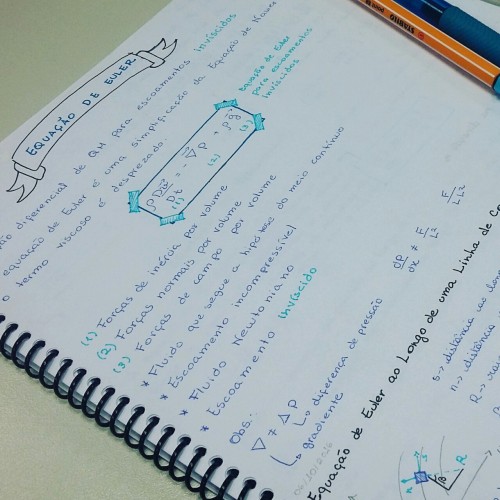 EQUAÇÃO DE EULER
diferencial de QM para escoamentos invíscidos
equação de Euler é uma simplificação da Equação de Navier
o termo viscoso é desprezado.
ρ D𝑣⃗/Dt = - ∇⃗P + ρg⃗
(1) (2) (3)
Equação de Euler
para escoamentos
invíscidos
(1) Forças de inércia por volume
(2) Forças normais por volume
(3) Forças de campo por volume
* Fluido que segue a hipótese do meio contínuo
* Escoamento incompressível
* Fluido Newtoniano
* Escoamento invíscido
Obs.:
∇ ≠ ΔP
↳ diferença de pressão
↳ gradiente
dP/dx ≠ F/L² F/L²
Equação de Euler ao Longo de uma Linha de
s → distância ao
n → distância
R →
n s β R
STABILO